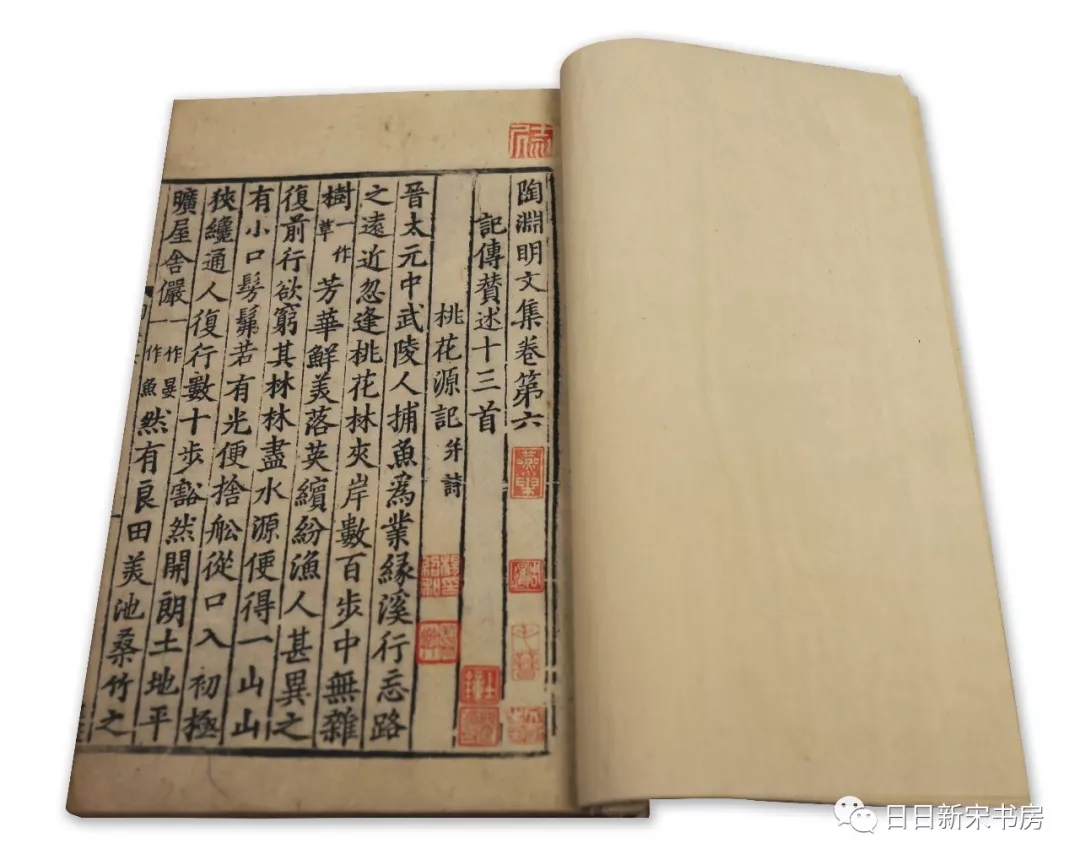 陶淵明文集卷第六
記傳贊述十三首
桃花源記并詩
晉太元中武陵人捕魚爲業緣溪行忘路
之遠近忽逢桃花林夾岸數百步中無雜
樹一作草芳華鮮美落英繽紛漁人甚異之
復前行欲窮其林林盡水源便得一山山
有小口髣髴若有光便捨舩從口入初極
狹纔通人復行數十步豁然開朗土地平
曠屋舍儼一作晏一作魚然有良田美池桑竹之
日日新宋书房